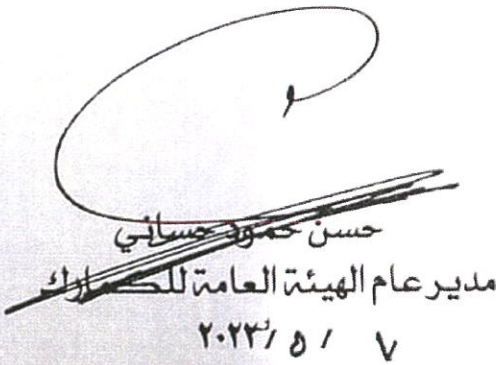 حسن حمود حساني
مدير عام الهيئة العامة للكمارك
٧ / ٥ / ٢٠٢٣